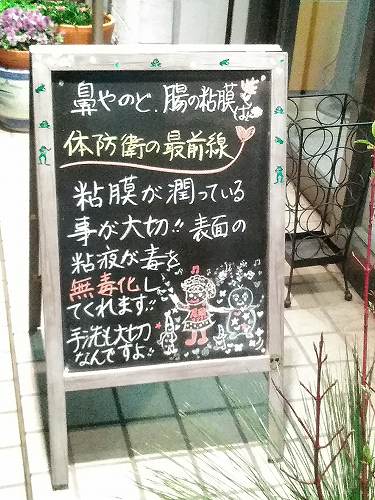 鼻やのど、腸の粘膜は
体防衛の最前線
粘膜が潤っている
事が大切!! 表面の
粘液が毒を
無毒化し
てくれます!!
手洗も大切
なんですよ!!